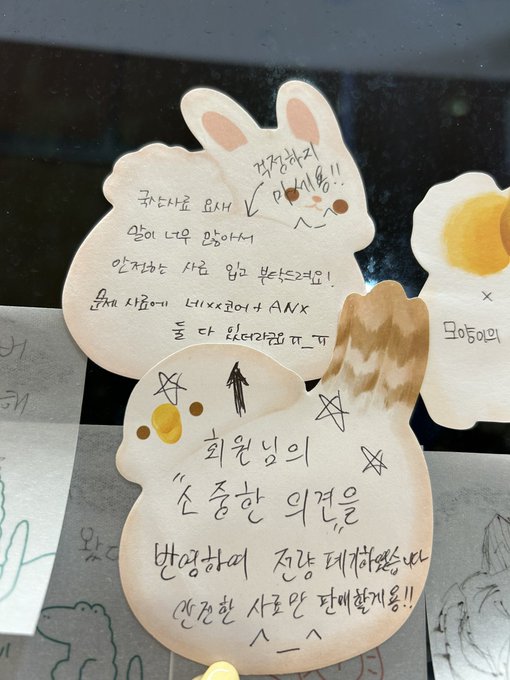 걱정하지
마세용!!
^_^
국산사료 요새
말이 너무 많아서
안전한 사료 입고 부탁드려요!
문제 사료에 네xx코어 + ANX
둘 다 있더라구요 ㅠ_ㅠ
x
모양이의
회원님의
"소중한 의견을"
반영하여 전량 폐기하였습니다
안전한 사료만 판매할게용!!
^_^